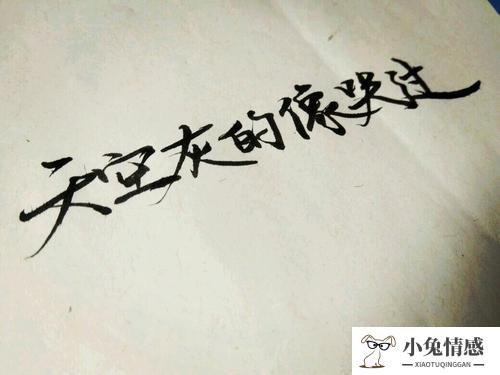 天空灰的像哭过
小兔情感
XIAOTUQINGGAN